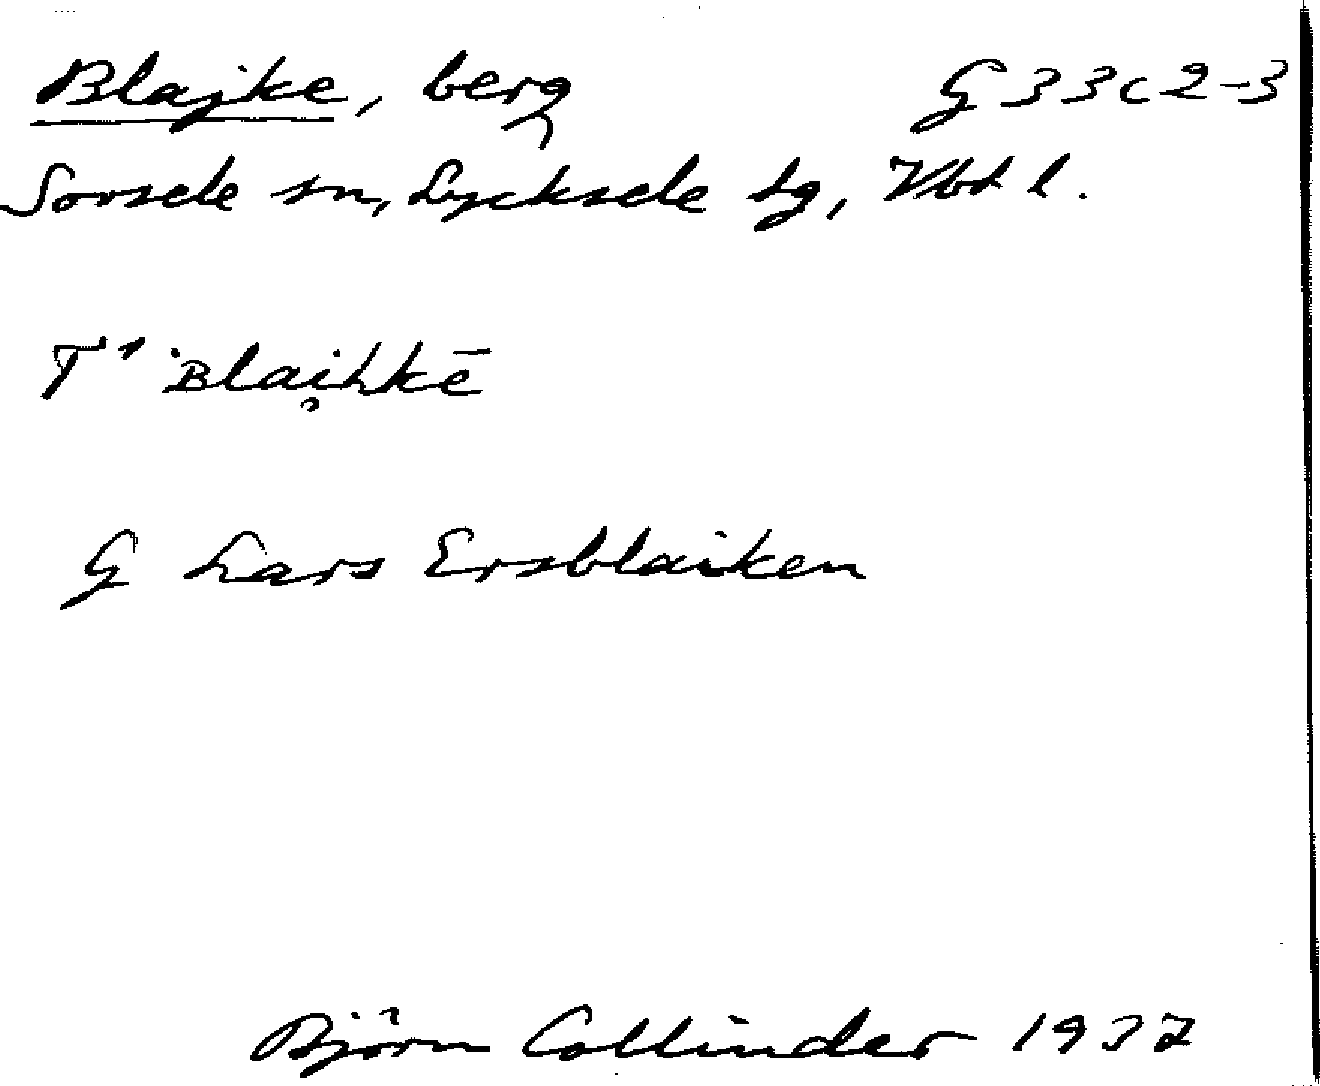 Blajke, berg G 33 c 2-3
Sorsele sn, Lycksele lg, Vbd l.
T¹ ˈʙlai̯hkē
G Lars Ersblaiken
Björn Collinder 1937